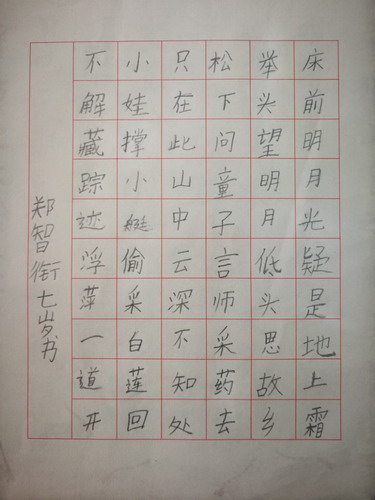 床前明月光疑是地上霜
举头望明月低头思故乡
松下问童子言师采药去
只在此山中云深不知处
小娃撑小艇偷采白莲回
不解藏踪迹浮萍一道开
郑智衔七岁书